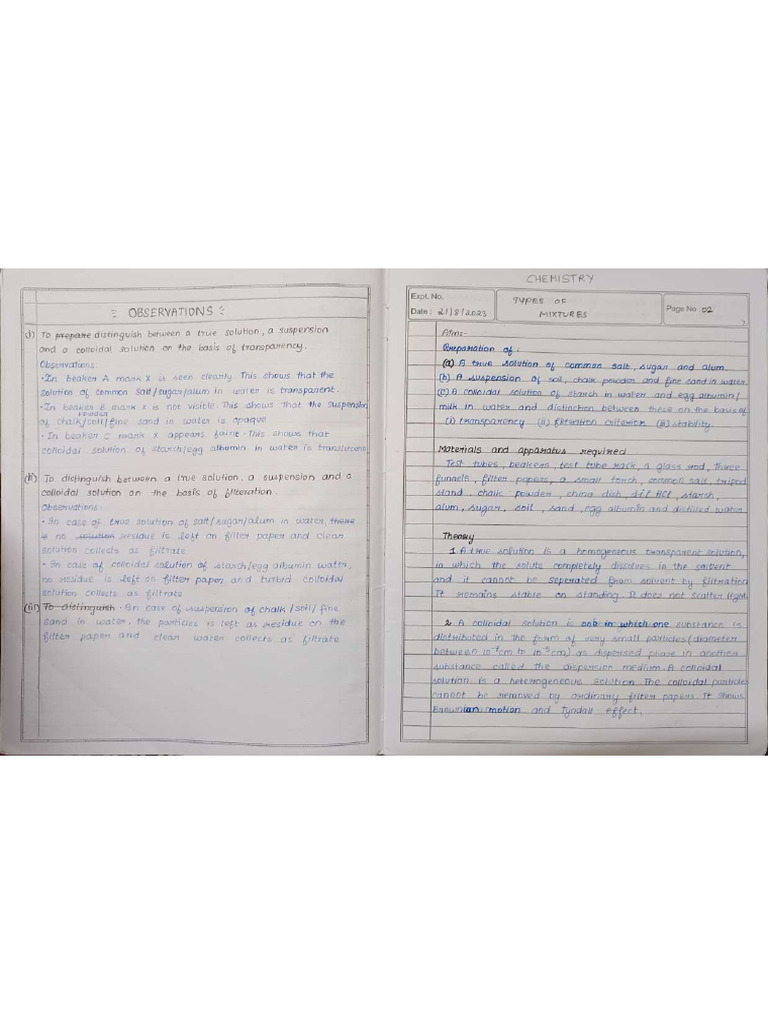 OBSERVATIONS
(i) To prepare distinguish between a true solution, a suspension
and a colloidal solution on the basis of transparency.
Observations:
• In beaker A mark X is seen clearly. This shows that the
solution of common salt/sugar/alum in water is transparent.
• In beaker B mark X is not visible. This shows that the suspension
powder
of chalk/soil/fine sand in water is opaque
• In beaker C mark X appears faint. This shows that
colloidal solution of starch/egg albumin in water is translucent
(ii) To distinguish between a true solution, a suspension and a
colloidal solution on the basis of filteration.
Observations:
• In case of true solution of salt/sugar/alum in water, there
is no solution residue is left on filter paper and clear
solution collects as filtrate
• In case of colloidal solution of starch/egg albumin watter,
no residue is left on filter paper and turbid colloidal
solution collects as filtrate
(iii) To distinguish • In case of suspension of chalk/soil/fine
sand in water, the particles is left as residue on the
filter paper and clean water collects as filtrate
CHEMISTRY
Expt. No.
Date: 21/8/2023
TYPES OF
MIXTURES
Page No. 02
Aim:-
Preparation of:
(a) A true solution of common salt, sugar and alum.
(b) A suspension of soil, chalk powder and fine sand in water.
(c) A colloidal solution of starch in water and egg albumin/
milk in water and distinction between these on the basis of
(i) transparency (ii) filtration criterion (iii) stability.
Materials and apparatus required
Test tubes, beakers, test tube rack, a glass rod, three
funnels, filter papers, a small torch, common salt, tripod
stand, chalk powder, china dish, dil HCl, starch,
alum, sugar, soil, sand, egg albumin and distilled water
Theory
1. A true solution is a homogeneous transparent solution,
in which the solute completely dissolves in the solvent
and it cannot be seperated from solvent by filtration.
It remains stable on standing. It does not scatter light.
2. A colloidal solution is one in which one substance is
distributed in the form of very small particles (diameter
between 10⁻⁷cm to 10⁻⁵cm) as dispersed phase in another
substance called the dispersion medium. A colloidal
solution is a heterogeneous solution. The colloidal particles
cannot be removed by ordinary filter papers. It shows
Brownian motion and Tyndall effect.